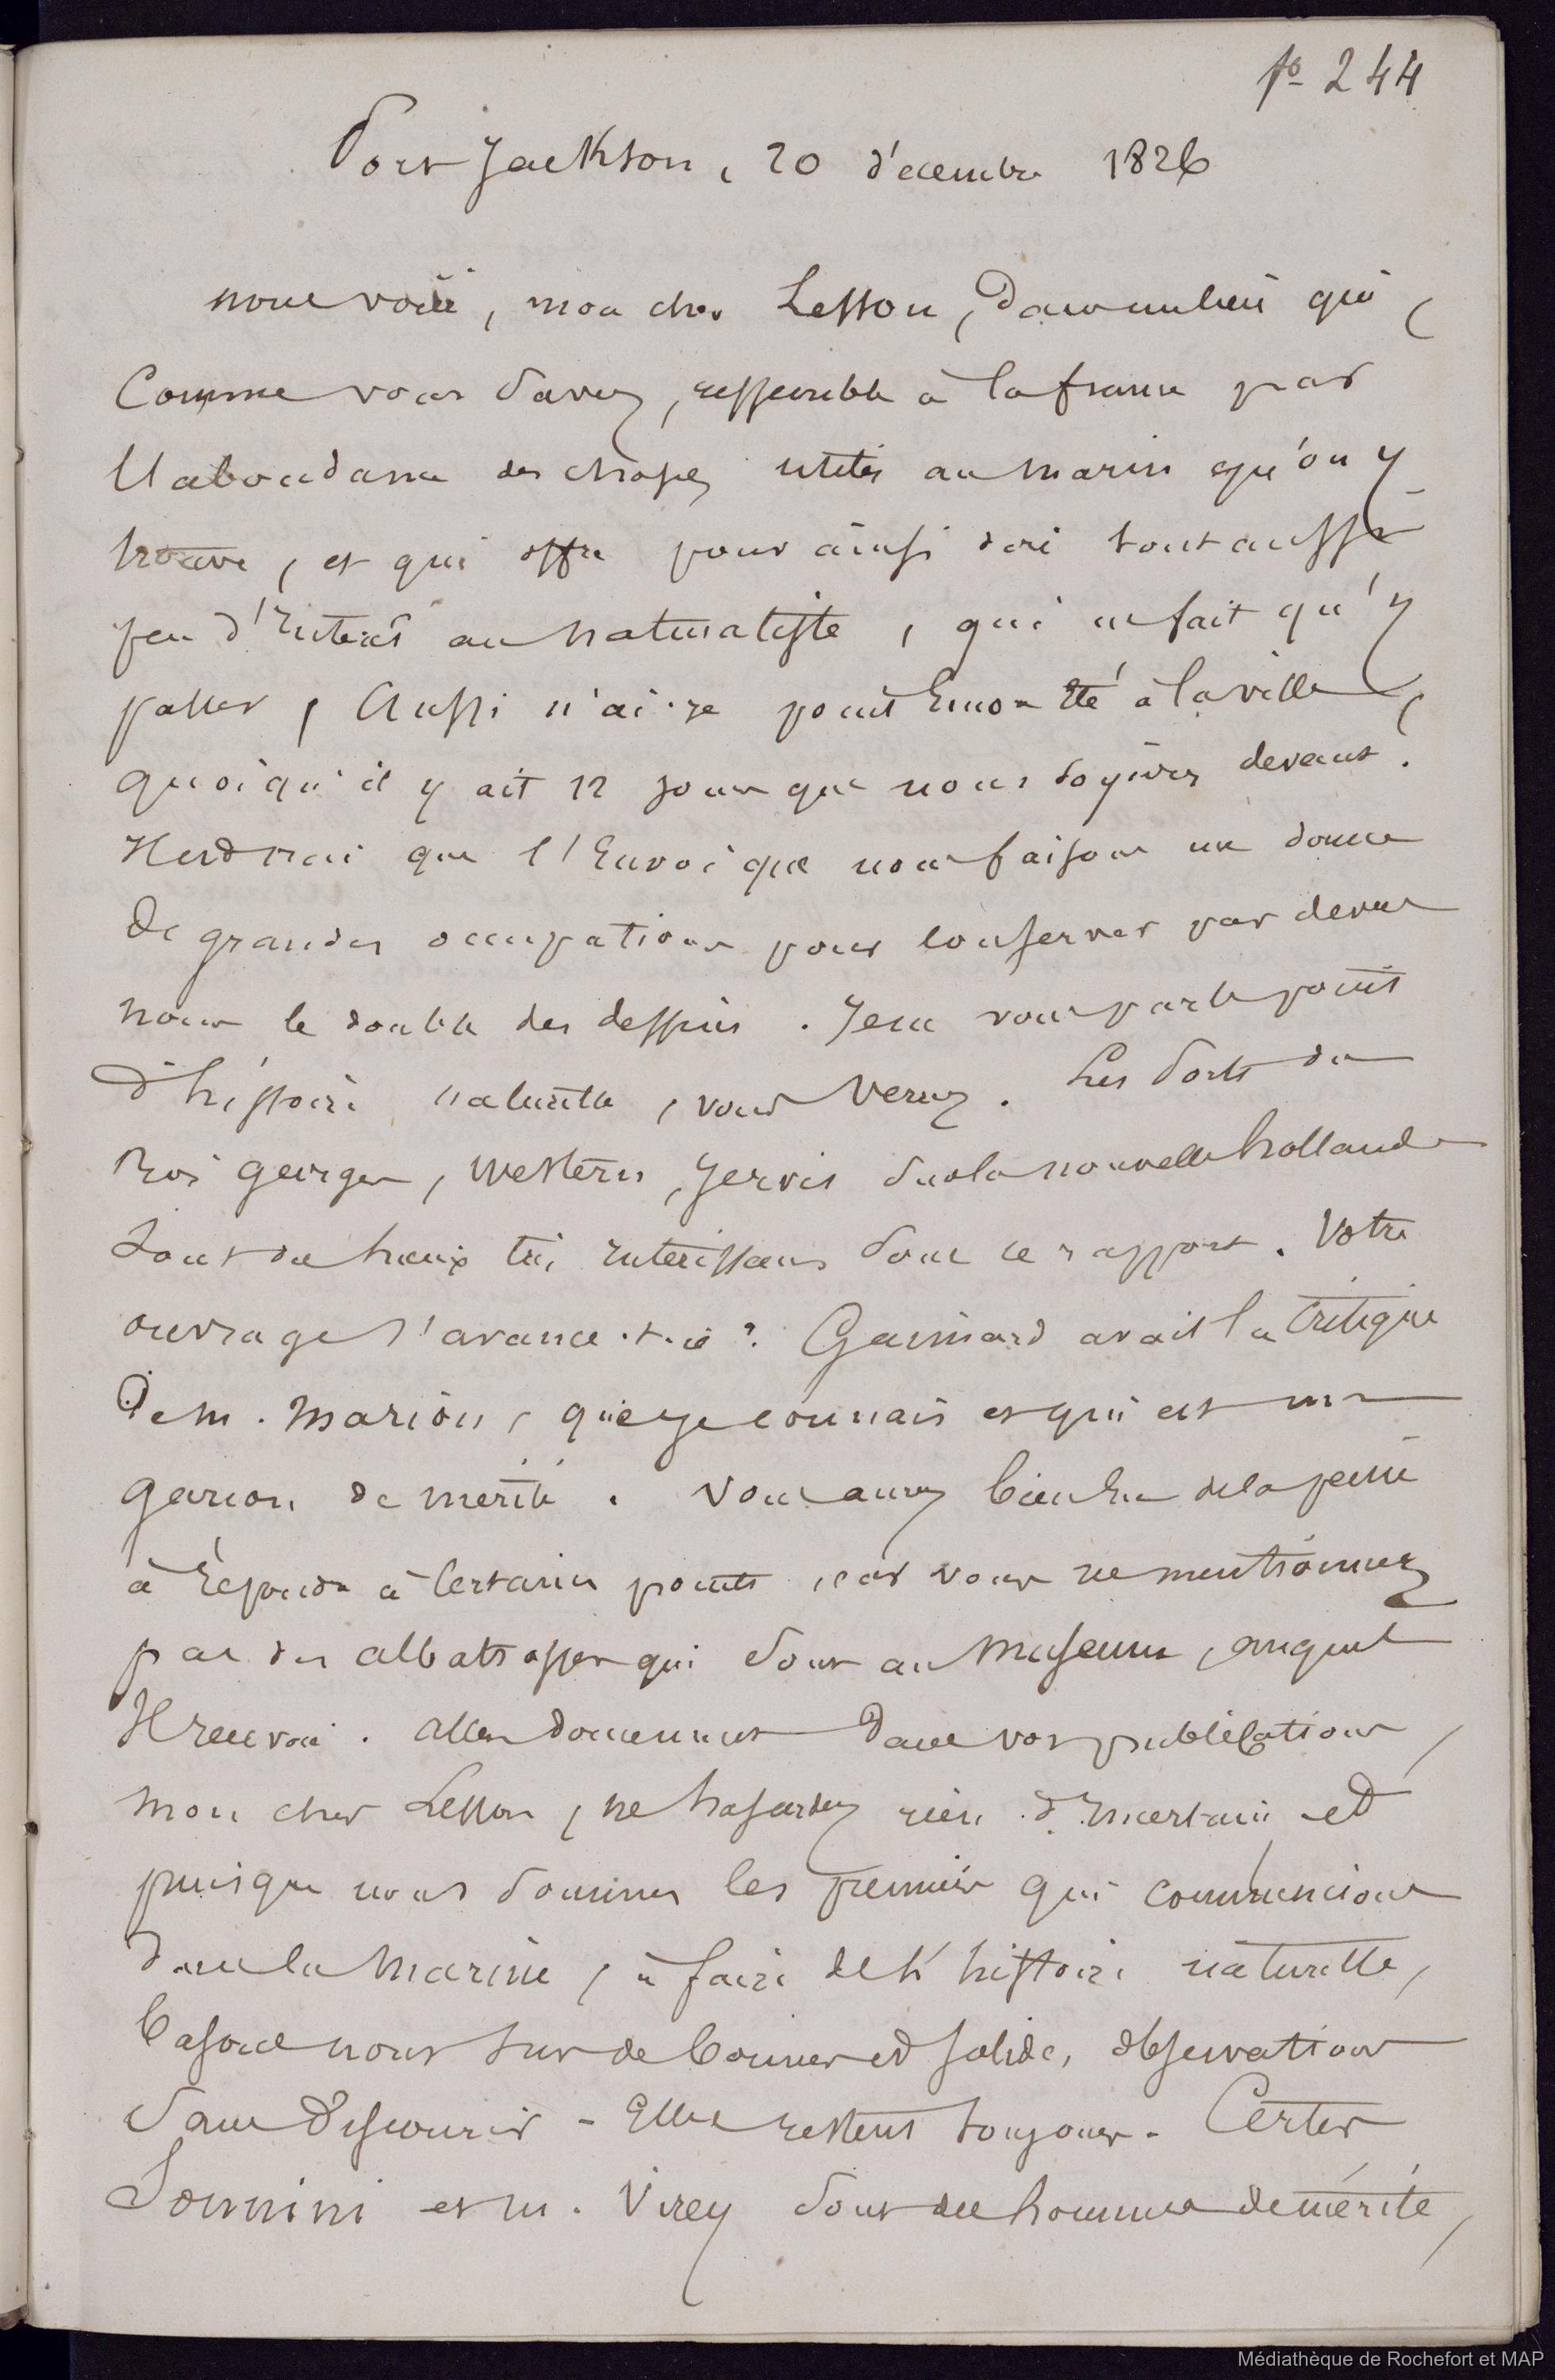 fo 244
Port Jackson, 20 décembre 1826
nous voici, mon cher Lesson, dans un lieu qui,
Comme vous savez, ressemble à la france par
l'abondance des choses utiles au marin qu'on y
trouve, et qui offre pour ainsi dire tout aussi
peu d'Intérêt au naturaliste, qui ne fait qu'y
passer, Aussi n'ai-je point Encore Eté à la ville,
quoiqu'il y ait 12 jours que nous soyions devant.
Il est vrai que l'Envoi que nous faisons me donne
de grandes occupations pour conserver par devers
nous le double des dessins. Je ne vous parle point
d'histoire naturelle, vous verrez. Les Ports du
Roi georges, Western, Jervis sur la nouvelle hollande
sont des lieux très Intéressans sous ce rapport. Votre
ouvrage s'avance-t-il ? Gaimard avait la Critique
de m. Marion, que je connais et qui est un
garcon de mérite. Vous aurez bien Eu de la peine
à répondre à Certains points, car vous ne mentionnez
pas des albatrosses qui sont au Museum, auquel
Il renvoi. Allez doucement dans vos publications,
mon cher Lesson, ne hasardez rien d'Incertain et
puisque nous sommes les premiers qui commencions
dans la Marine, à faire de l'histoire naturelle,
basons nous sur de bonnes et solides observations
sans discourir - Elles restent toujours. Certes
Sonnini et m. Virey sont des hommes de mérite,
Médiathèque de Rochefort et MAP